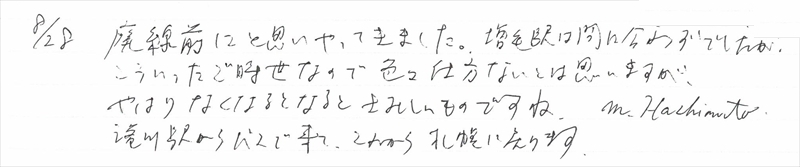 8/28 廃線前にと思いやって来ました。増毛駅は間に合わずでしたが、
こういったご時世なので色々仕方ないとは思いますが、
やはりなくなるとなるとさみしいものですね。 M. Hashimoto.
滝川駅からバスで来て、これから札幌に戻ります。